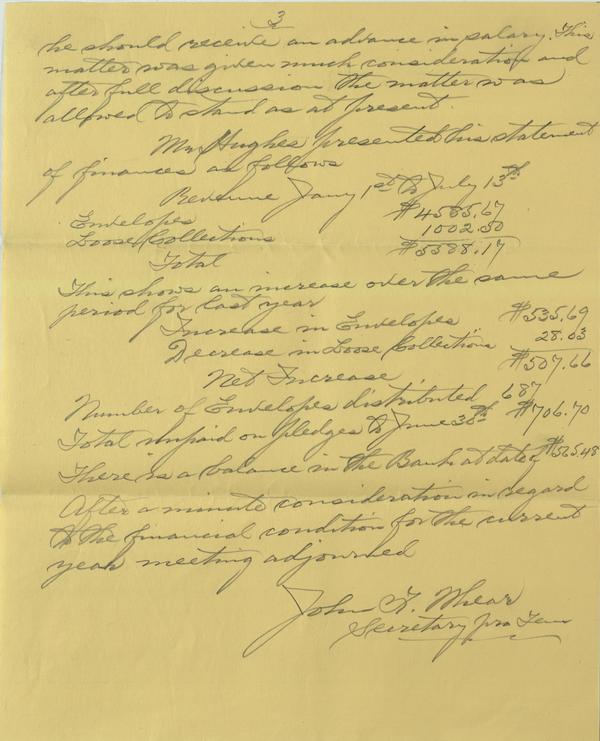 3
he should receive an advance in salary. This
matter was given much consideration and
after full discussion the matter was
allowed to stand as at present.
Mr. Hughes presented his statement
of finances as follows
Revenue Jany 1st to July 13th
Envelopes $4585.67
Loose Collections 1002.50
Total $5588.17
This shows an increase over the same
period for last year
Increase in Envelopes $535.69
Decrease in Loose Collections 28.03
Net Increase $507.66
Number of Envelopes distributed 687
Total unpaid on pledges to June 30th $706.70
There is a balance in the Bank at date of $565.48
After a minute consideration in regard
to the financial condition for the current
year meeting adjourned
John F. Whear
Secretary pro Tem